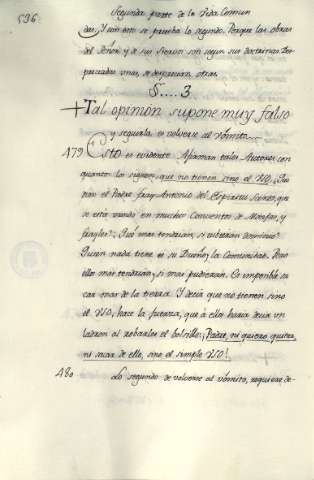 536.
Segunda parte de la Vida Comun
das. Y con esto se prueba lo segundo. Porque las obras
del Señor, y de sus Siervos son segun sus doctrinas. Des-
preciadas unas, se desprecian otras.
§....3
Tal opinion supone muy falso
y seguirla es volverse al vómito.
479 Esto es evidente. Afirman tales Autores con
quantos los siguen, que no tienen sino el USO. Que
el Padre Fray Antonio del Espiritu Santo, que
se está viendo en muchos Conventos de Monjas, y
frayles? Qué mas tendrian, si tubieran dominio?
Quien nada tiene es su Dueño, la Comunidad. Pero
ellos mas tendrian, si mas pudieran. Es imposible sa-
car mas de la tierra. Y decir que no tienen sino
el USO, hace la fuerza, que á ellos haria decir un
ladron al robarles el bolsillo: Padre, ni quiero quitar,
ni sacar de ello, sino el simple USO!
480 Lo segundo de volverse al vómito, requiere de-